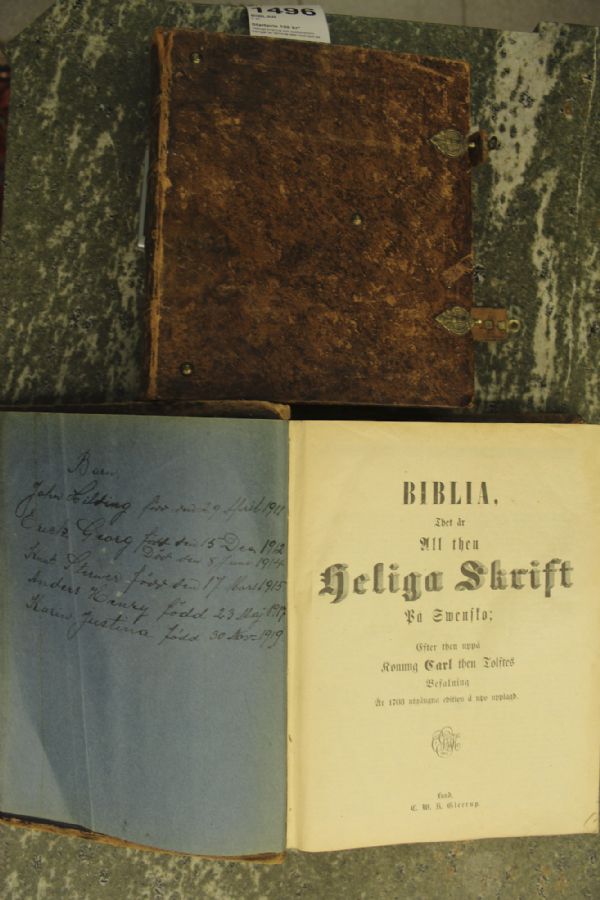 1496
BIBEL
Startpris 100 kr*
Barn
John Hilding född den 29 April 1911
Erick Georg född den 15 Dec 1912
Död den 8 Juni 1914
Knut Stener född den 17 Mars 1915
Anders Henry född 23 Maj 1917
Karin Justina född 30 Nov 1919
BIBLIA,
Thet är
All then
Heliga Skrift
På Swensko;
Efter then uppå
Konung Carl then Tolftes
Befalning
År 1703 utgångna edition å nyo upplagd.
Lund,
C. W. K. Gleerup.